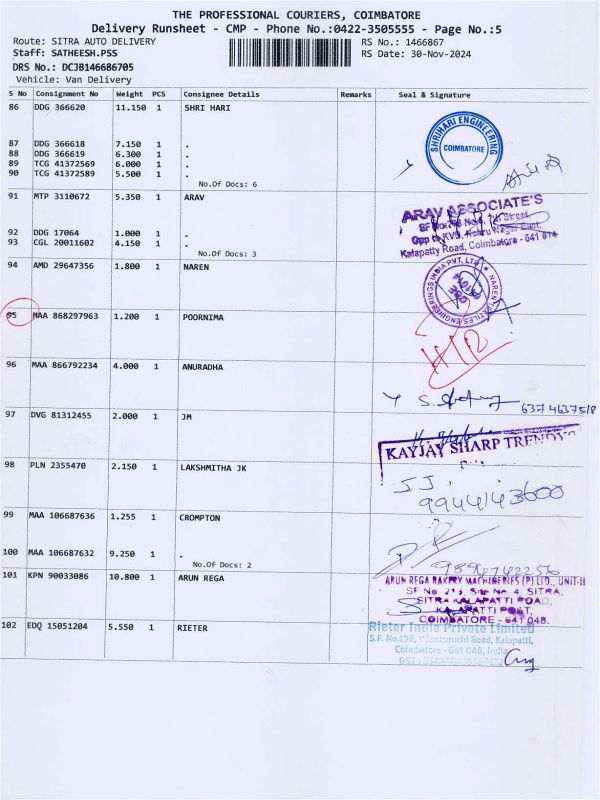 THE PROFESSIONAL COURIERS, COIMBATORE
Delivery Runsheet - CMP - Phone No.:0422-3505555 - Page No.:5
Route: SITRA AUTO DELIVERY RS No.: 1466867
Staff: SATHEESH.PSS RS Date: 30-Nov-2024
DRS No.: DCJB146686705
Vehicle: Van Delivery
S No Consignment No Weight PCS Consignee Details Remarks Seal & Signature
86 DDG 366620 11.150 1 SHRI HARI
SHRIHARI ENGINEERING
COIMBATORE
87 DDG 366618 7.150 1 .
88 DDG 366619 6.300 1 .
89 TCG 41372569 6.000 1 .
90 TCG 41372589 5.500 1 .
No.Of Docs: 6
91 MTP 3110672 5.350 1 ARAV
ARAV ASSOCIATE'S
Opp to KVB, Nehru Nagar East,
Kalapatty Road, Coimbatore - 641 014
92 DDG 17064 1.000 1 .
93 CGL 20011602 4.150 1 .
No.Of Docs: 3
94 AMD 29647356 1.800 1 NAREN
95 MAA 868297963 1.200 1 POORNIMA
96 MAA 866792234 4.000 1 ANURADHA
6374637518
97 DVG 81312455 2.000 1 JM
KAYJAY SHARP TRENDYS
98 PLN 2355470 2.150 1 LAKSHMITHA JK
JJ
9944143600
99 MAA 106687636 1.255 1 CROMPTON
100 MAA 106687632 9.250 1 .
No.Of Docs: 2
101 KPN 90033086 10.800 1 ARUN REGA
ARUN REGA BAKERY MACHINERIES (P) LTD., UNIT-II
SF No 213, Site No. 4, SITRA,
SITRA KALAPATTI ROAD,
KALAPATTI POST,
COIMBATORE - 641 048.
102 EDQ 15051204 5.550 1 RIETER
Rieter India Private Limited
S.F. No.198, Kalapatti,
Coimbatore - 641 048, India